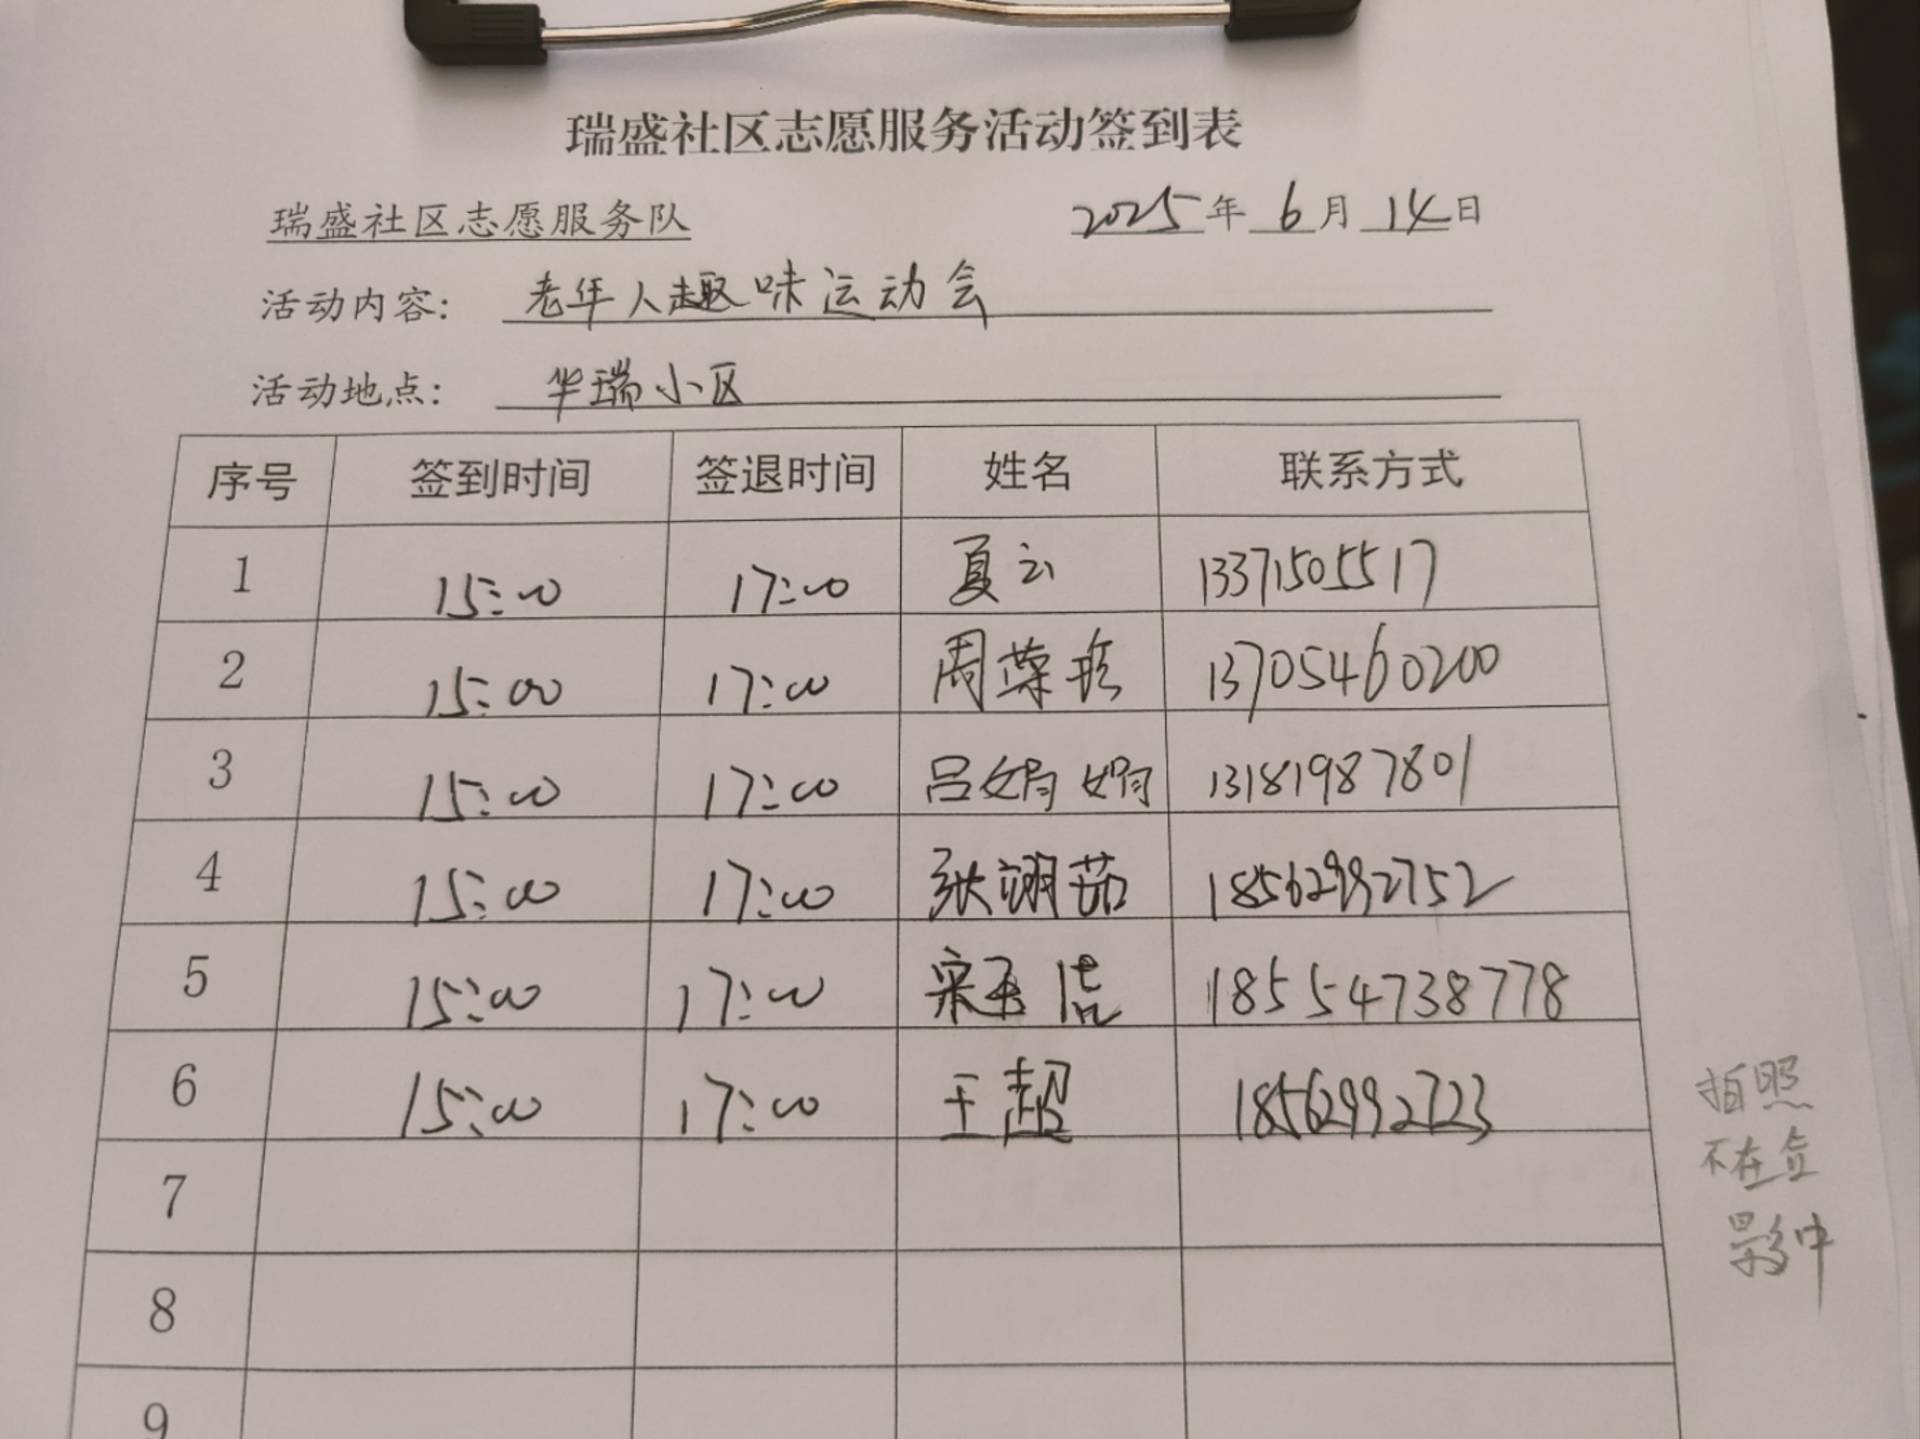 瑞盛社区志愿服务活动签到表
瑞盛社区志愿服务队 2025年6月14日
活动内容: 老年人趣味运动会
活动地点: 华瑞小区
序号 签到时间 签退时间 姓名 联系方式
1 15:00 17:00 夏云 13371505517
2 15:00 17:00 周荣珍 13705460200
3 15:00 17:00 吕娟娟 13181987801
4 15:00 17:00 张翊茹 18562992752
5 15:00 17:00 宋玉洁 18554738778
6 15:00 17:00 王超 18562992723
7
8
9
拍照
不在合
影中